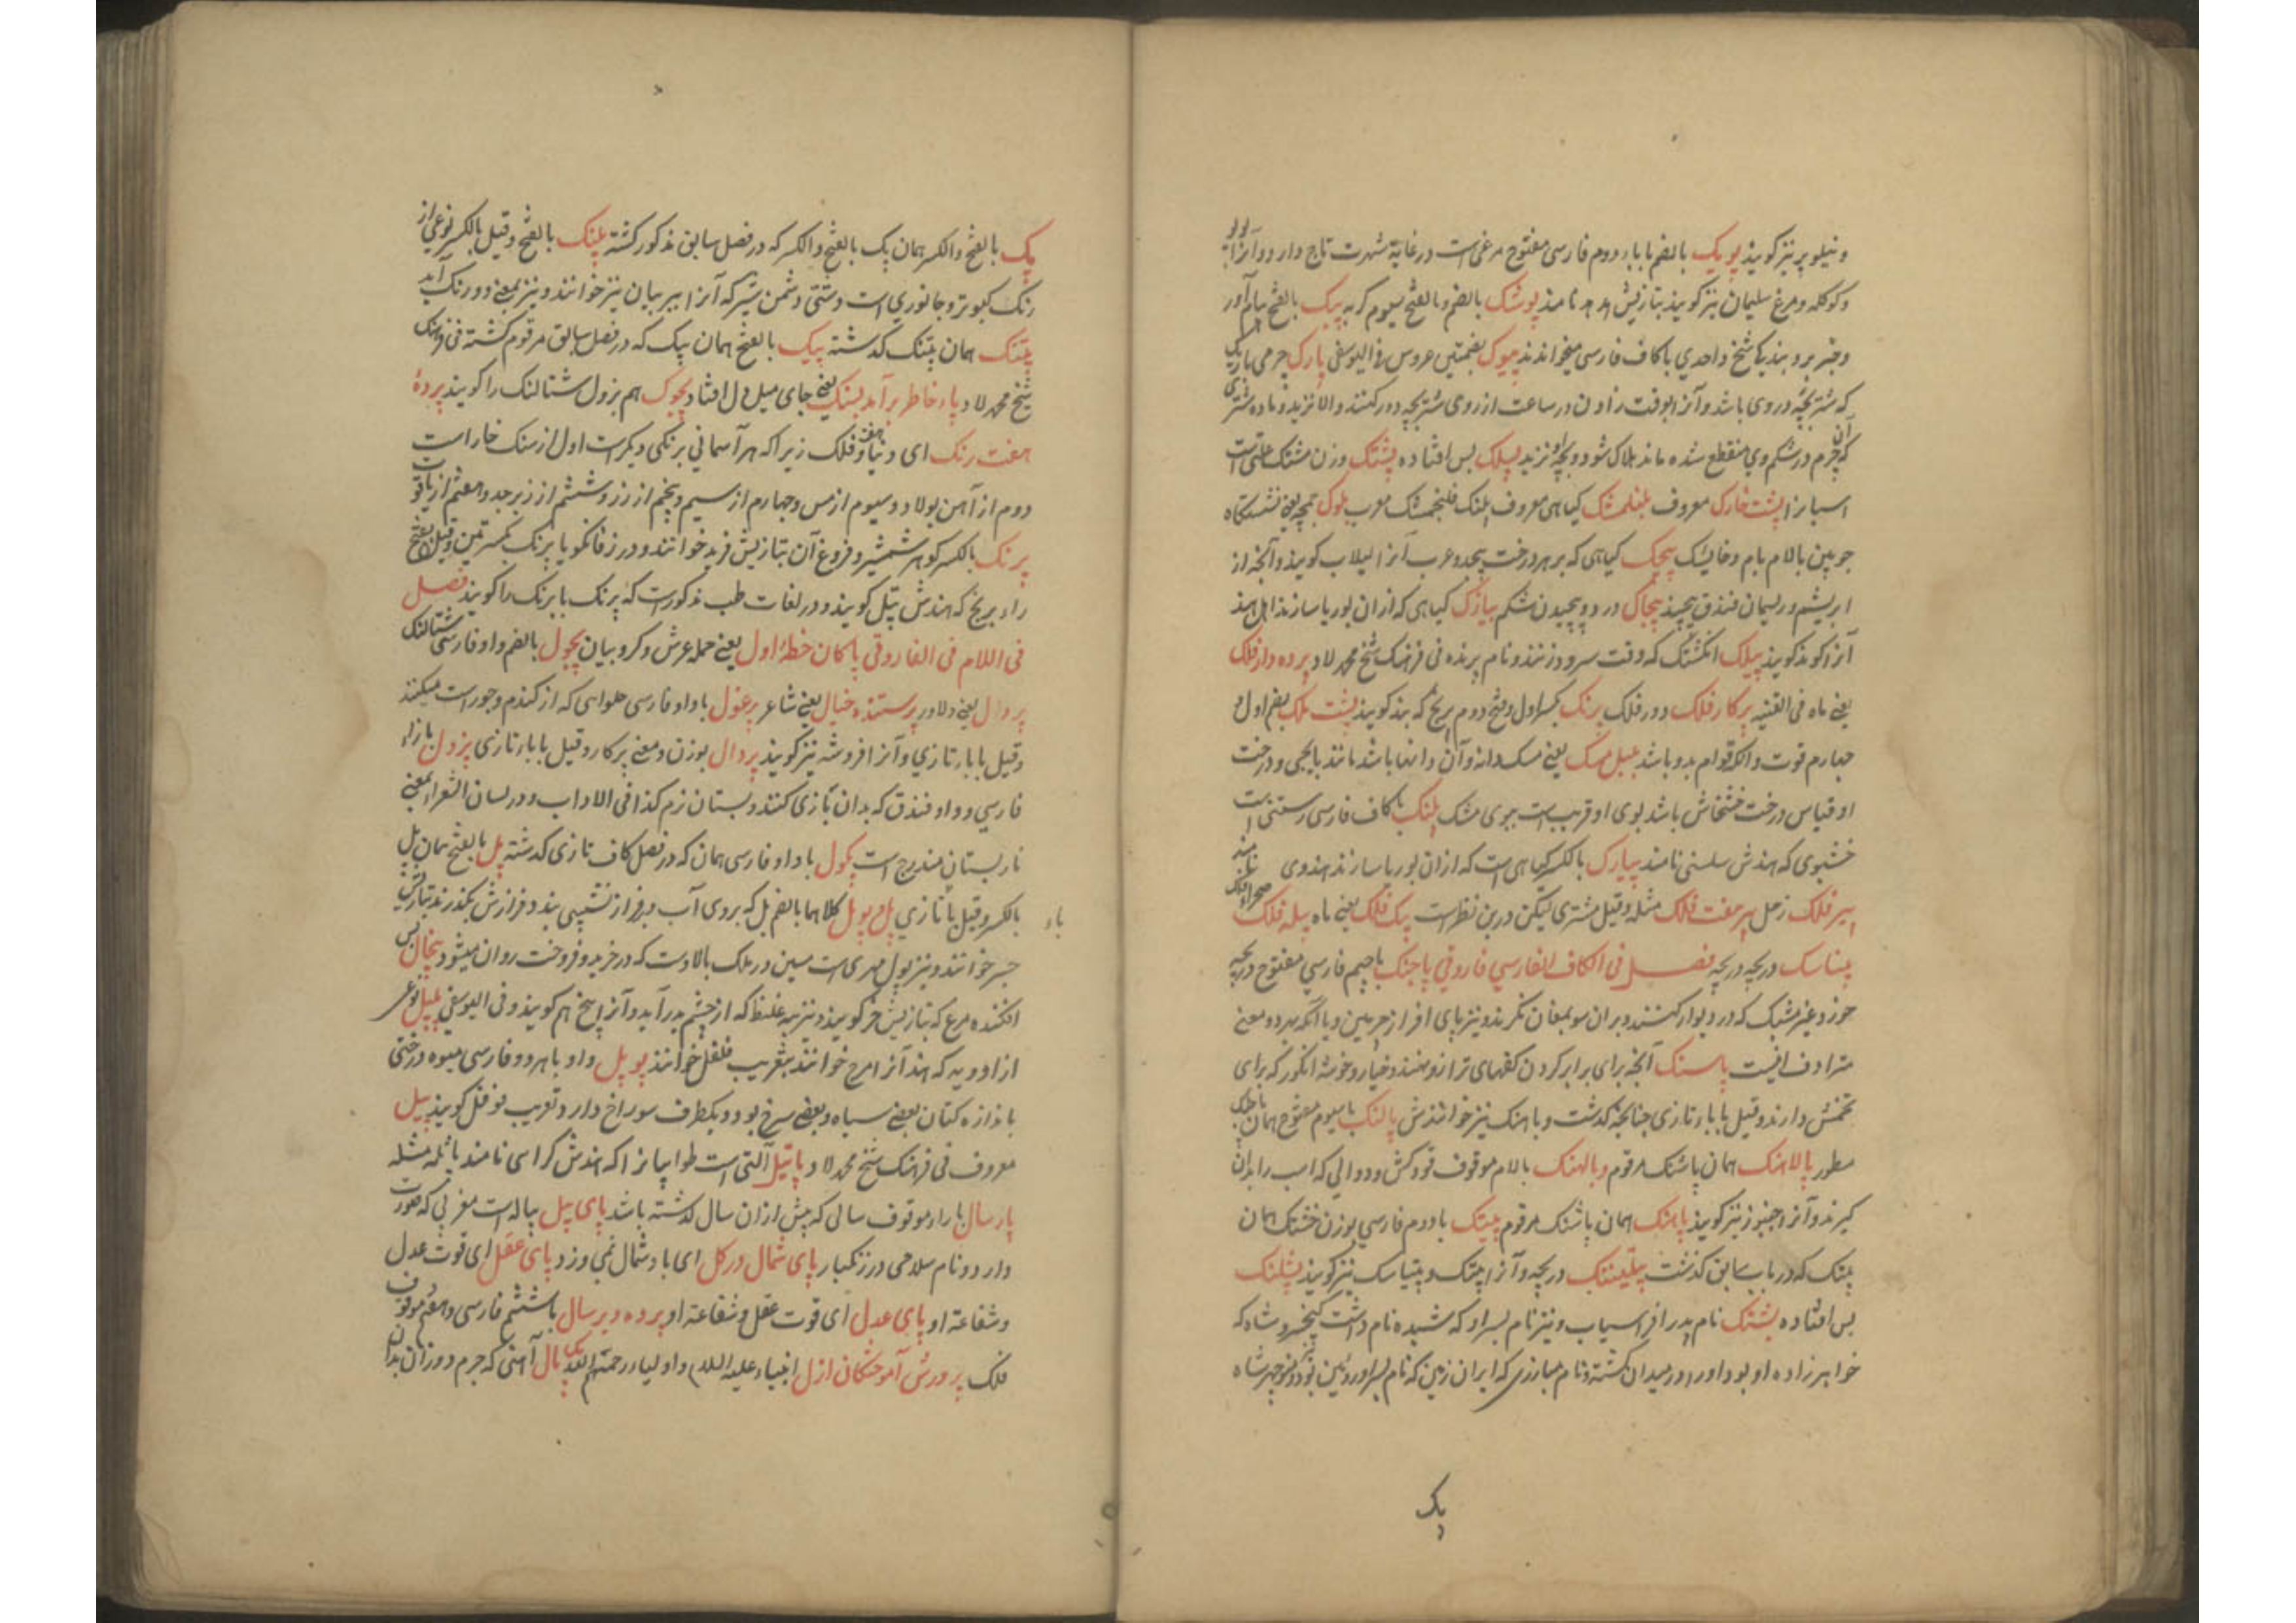 و نیلوپر نیز کویند پوپک بالضم با باء دوم فارسی مفتوح مرغی است در غایة شهرت تاج دارد و آنرا
و کوکله و مرغ سلیمان نیز کویند بتازیش هدهد نامند پوشک بالضم و بالفتح سیوم کربه پیک بالفتح پیام آور
و خبر بر و بندیکا شیخ واحدی با کاف فارسی میخواندند پیوک بضمتین عروس فی الیوسفی پارک چرمی باریک
که شتر بچه در وی باشد و آنرا بوقت زادن در ساعت از روی شتر بچه دور کنند و الا نزید و ماده شتری
که آن چرم در شکم وی منقطع شده ماند هلاک شود و بچه نزید پسلک پس افتاده پشتک وزن مشتک علتی است
اسپانرا پشت خارک معروف پلنکمشک کیاهی معروف پلنک فلنجمشک معرب پلوک
چوبین بالام بام و خایسک پیچک کیاهی که بر هر درخت پیچد و عرب آنرا لبلاب کویند و آنچه از
ابریشم و ریسمان فندق پیچند پیچاک درد و پیچیدن شکم پیازک کیاهی که از ان بوریا سازند اهل هند
آنرا کوند کویند پیلک انکشتک که وقت سرود زنند و نام پرنده فی فرهنک شیخ محمد لاد پرده دار فلک
یعنی ماه فی القنیه پرکار فلک دور فلک پرنک بکسر اول و فتح دوم برنج که بند کویند پشت ملک بضم اول و
چهارم قوت و انکه قوام بدو باشد پیل مسک یعنی مسک دانه و آن دانها باشد مانند بابچی و درخت
او قیاس درخت خشخاش باشد بوی او قریب است ببوی مشک پلنک با کاف فارسی رستنی است
خشبوی که هندش سلسنی نامند پیارک بالکسر کیاهی است که از ان بوریا سازند هندوی نامند
پیر فلک زحل پیر هفت فلک مثله و قیل مشتری لیکن درین نظر است پیک فلک یعنی ماه پیله فلک
پنناسک دریچه دریچه فصل فی الکاف الفارسی فاروقی پاجنک با جیم فارسی مفتوح دریچه
خورد و غیر مشبک که در دیوار کنند و بر ان سو بمغان نکرند و نیز پای افزار چرمین و با انکه بهر دو معنی
مترادف افیست پاسنک آنچه برای برابر کردن کفهای ترازو نهند و خیار و خوشه انکور که برای
تخمش دارند و قیل با باء تازی چنانچه کذشت و باهنک نیز خوانندش پالنک با سیوم مفتوح همان پاجنک
مسطور پالاهنک همان پاشنک مرقوم و پالهنک بالام موقوف قودکش و دوالی که اسب را بدان
کیرند و آنرا جنیور نیز کویند پاهنک همان پاشنک مرقوم پیتک با دوم فارسی بوزن خشتک همان
پتنک که در باب سابق کذشت پتیسنک دریچه و آنرا پتنک و پتیاسک نیز کویند پشلنک
پس افتاده پشنک نام پدر افراسیاب و نیز نام پسر او که شیده نام داشت کیخسرو شاه که
خواهرزاده او بود او را در میدان کشته و نام مبارزی که ایران زمین که نام پسر او روئین بود و منوچهر شاه
پک
پک بالفتح و الکسر همان پک بالفتح و الکسر که در فصل سابق مذکور کشته پلنک بالفتح و قیل بالکسر نوعی از
رنک کبوتر و جانوری است دشتی دشمن شیر که آنرا ببر بیان نیز خوانند و نیز بمعنی دو رنک آید
پتنک همان پتنک کذشته پیک بالفتح همان پیک که در فصل سابق مرقوم کشته فی فرهنک
شیخ محمد لاد پاء خاطر برآمد بسنک یعنی جای میل دل افتاد پجوک هم بزول شتالنک را کویند پردهٔ
هفت رنک ای دنیا و هفت فلک زیرا که هر آسمانی برنکی دیکرست اول از سنک خاراست
دوم از آهن بولاد و سیوم از مس و چهارم از سیم و پنجم از زر و ششم از زبرجد و هفتم از یاقوت
پرنک بالکسر کوهر شمشیر و فروغ آن بتازیش فرند خوانند و در زفانکویا پرنک بکسرتین و قیل بفتح
راء برنج که هندش پیتل کویند و در لغات طب مذکورست که پرنک با برنک را کویند فصل
فی اللام فی الفاروقی پاکان خطهٔ اول یعنی حمله عرش و کروبیان پجول بالضم و او فارسی شتالنک
پر دال یعنی دلاور پرستنده خیال یعنی شاعر پرغول با واو فارسی حلوایی که از کندم و جو راست میکنند
و قیل با باء تازی و آنرا افروشه نیز کویند پردال بوزن و معنی پرکار و قیل با باء تازی پژول با زاء
فارسی و واو فندق که بدان بازی کنند و پستان نرم کذا فی الاداب و در لسان الشعراء بمعنی
نارپستان مندرج است پکول با واو فارسی همان که در فصل کاف تازی کذشته پل بالفتح همان پل
باء بالکسر و قیل با تازی پل و پول کلاهما بالضم پل که بر وی آب و فراز نشیبی بند و فرازش بکذرند بتازیش
جسر خوانند و نیز پول مهری است مسین در ملک بالا دست که در خرید و فروخت روان میشود پیخال پس
افکنده مرغ که بتازیش خر کویند و نیز پیه غلیظ که از چشم بدر آید و آنرا پیخ هم کویند و فی الیوسفی پلپل نوعی
از ادویه که هند آنرا مرچ خوانند بتعریب فلفل خوانند پوپل واو با هر دو فارسی میوه درختی
باندازه کتان بعضی سیاه و بعضی سرخ بود و یکطرف سوراخ دارد و تعریب فوفل کویند پیل
معروف فی فرهنک شیخ محمد لاد پاتیل آلتی است حلواییانرا که هندش کراهی نامند پاتله مثله
پارسال با راء موقوف سالی که پیش از ان سال کذشته باشد پای پیل پیاله است مغربی که صورت
دارد و نام سلاحی در زنکبار پای شمال در کل ای باد شمال نمی وزد پای عقل ای قوت عدل
و شفاعة او پای عدل ای قوت عقل و شفاعة او پرده دیرسال با ششم فارسی و هفتم موقوف
فلک پرورش آموختکان ازل انبیاء علیه السلام و اولیاء رحمهم الله یک پال آهنی که جرم دوزان بدان